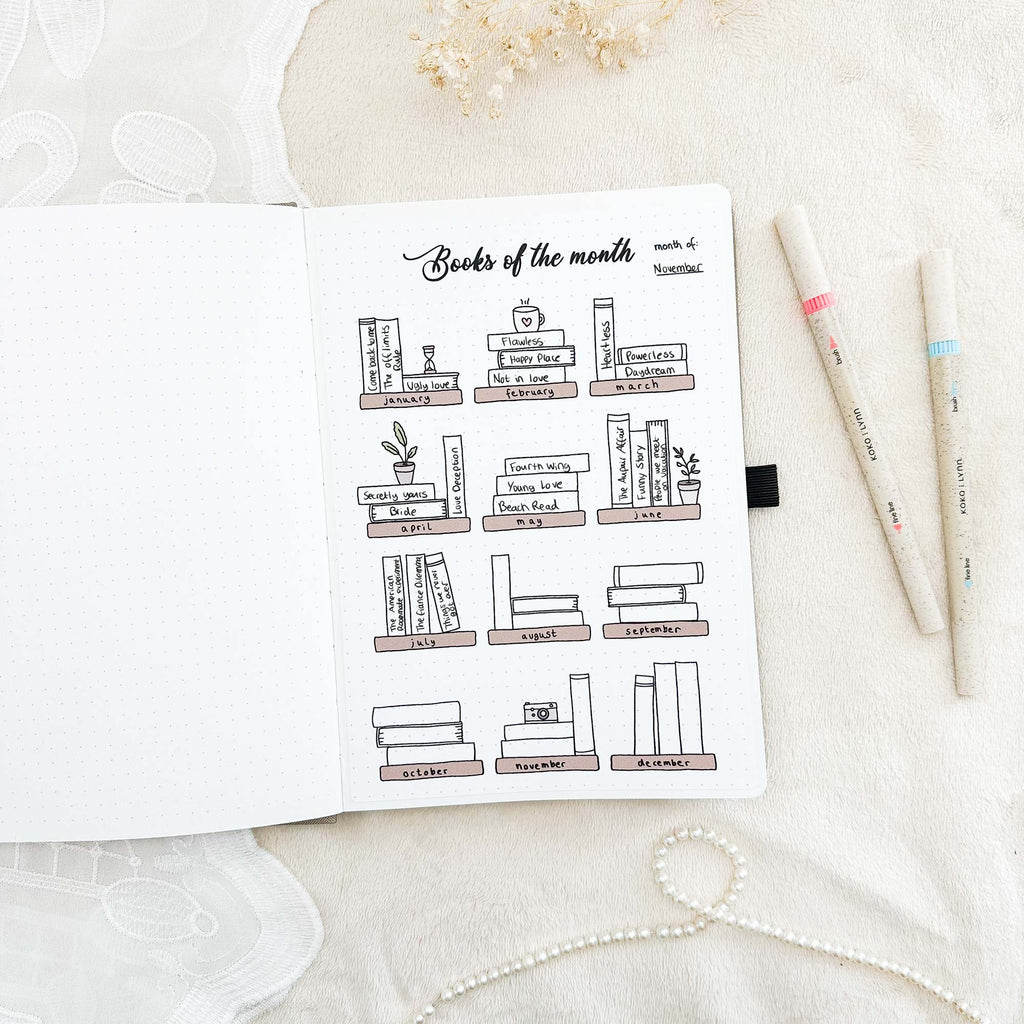 Books of the month
month of:
November
Come back to me
The off limits
Rule
Ugly love
january
Flawless
Happy Place
Not in love
february
Heartless
Powerless
Daydream
march
Secretly yours
Bride
Love Deception
april
Fourth Wing
Young Love
Beach Read
may
The Aupair Affair
Funny Story
People we meet
on vacation
june
The American
Roommate experiment
The fiance Dilemma
Things we never
got over
july
august
september
october
november
december
brush
KOKO | LYNN
fine line
brush
KOKO | LYNN
fine line